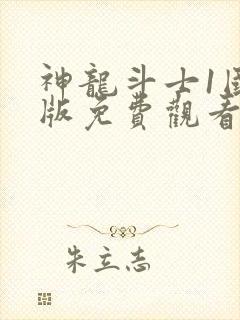 神龍斗士1
版免費觀看
朱立志